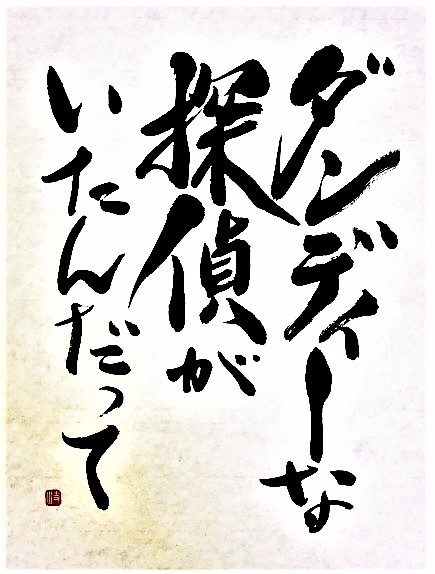 ダンディーな
探偵が
いたんだって